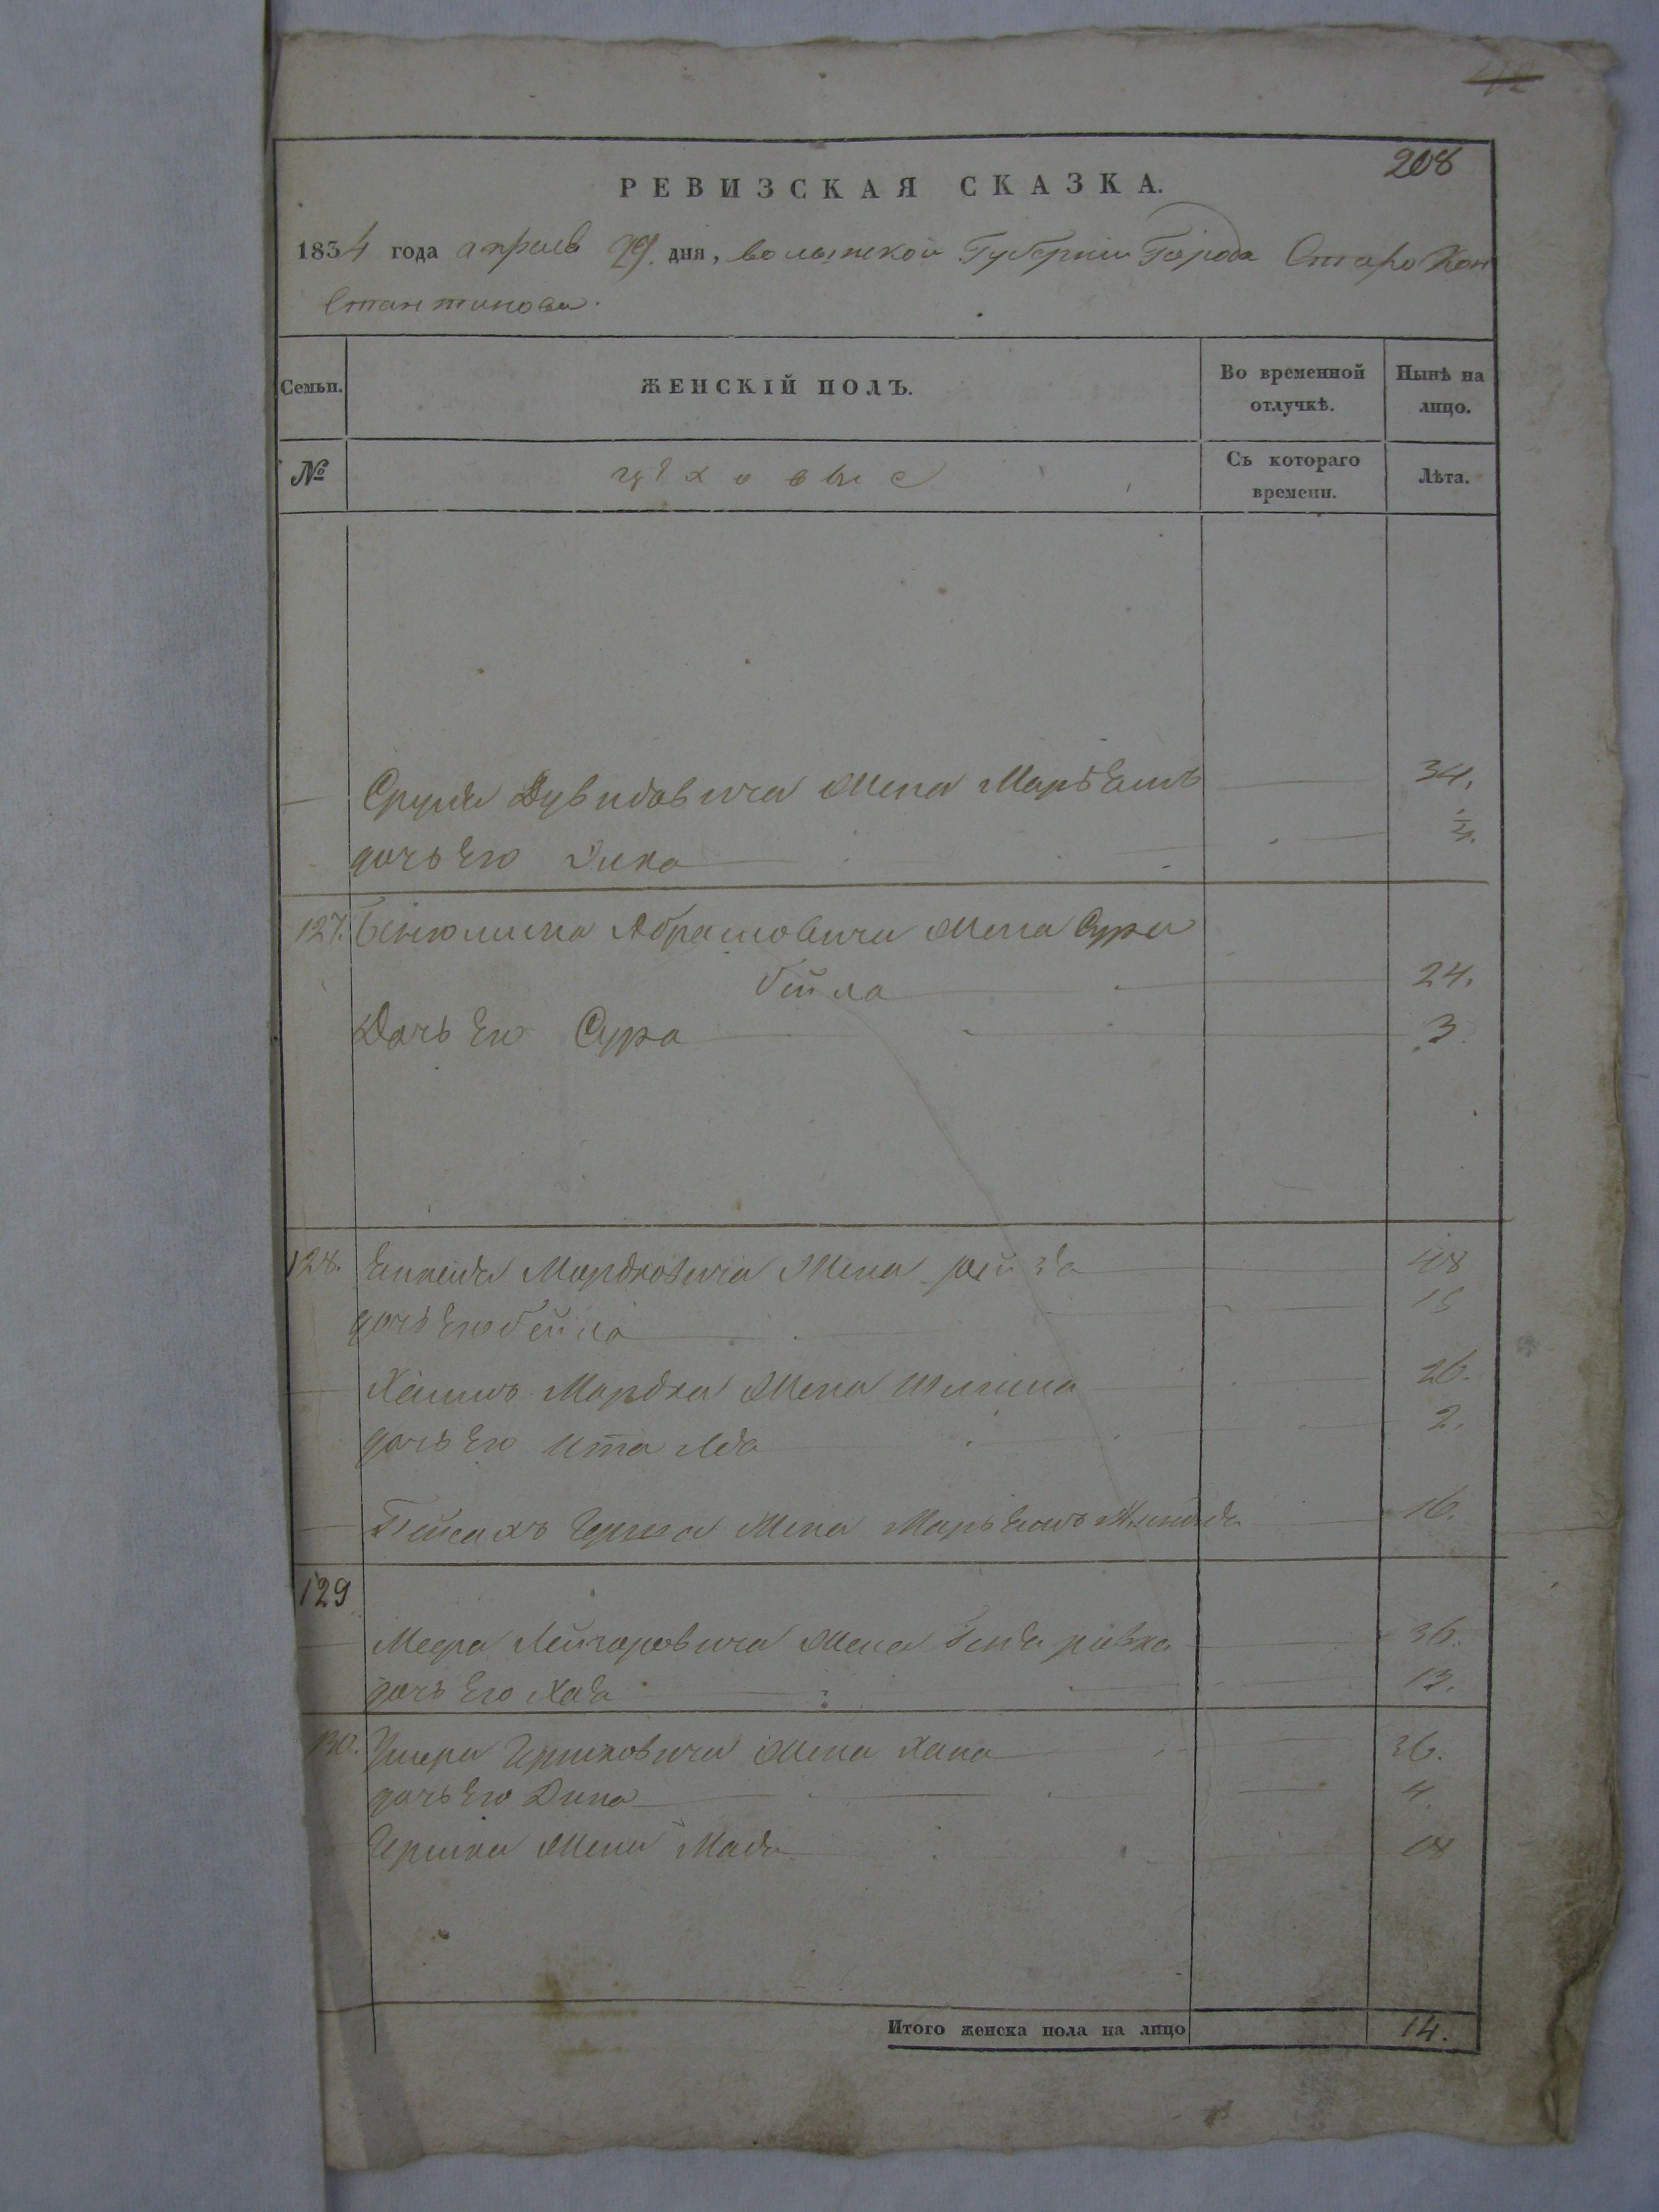 208
РЕВИЗСКАЯ СКАЗКА.
1834 года апреля 29. дня, волынской Губернии Города Старо Кон
стантинова.
Семьи. ЖЕНСКІЙ ПОЛЪ. Во временной отлучкѣ. Нынѣ на лицо.
№ цѣховые Съ котораго времени. Лѣта.
Сруля Дувидовича жена Марьемъ 34.
дочь Его Дина
127. Бенюмина Абрамовича жена Сура
бейла 24.
Дочь Его Сура 3
128. Мордковича жена рейза 48
дочь Его бейла 15
Хаимъ Мордка жена 26.
дочь Его Ита Лея 2.
Пейсахъ Герша жена Марьемъ 16.
129
Меера Лейзоровича жена ривка 36.
дочь Его Хая 13.
130. Ушера Гершковича жена Хана 36.
дочь Его Дина 4.
Гершка жена 18
Итого женска пола на лицо 14.